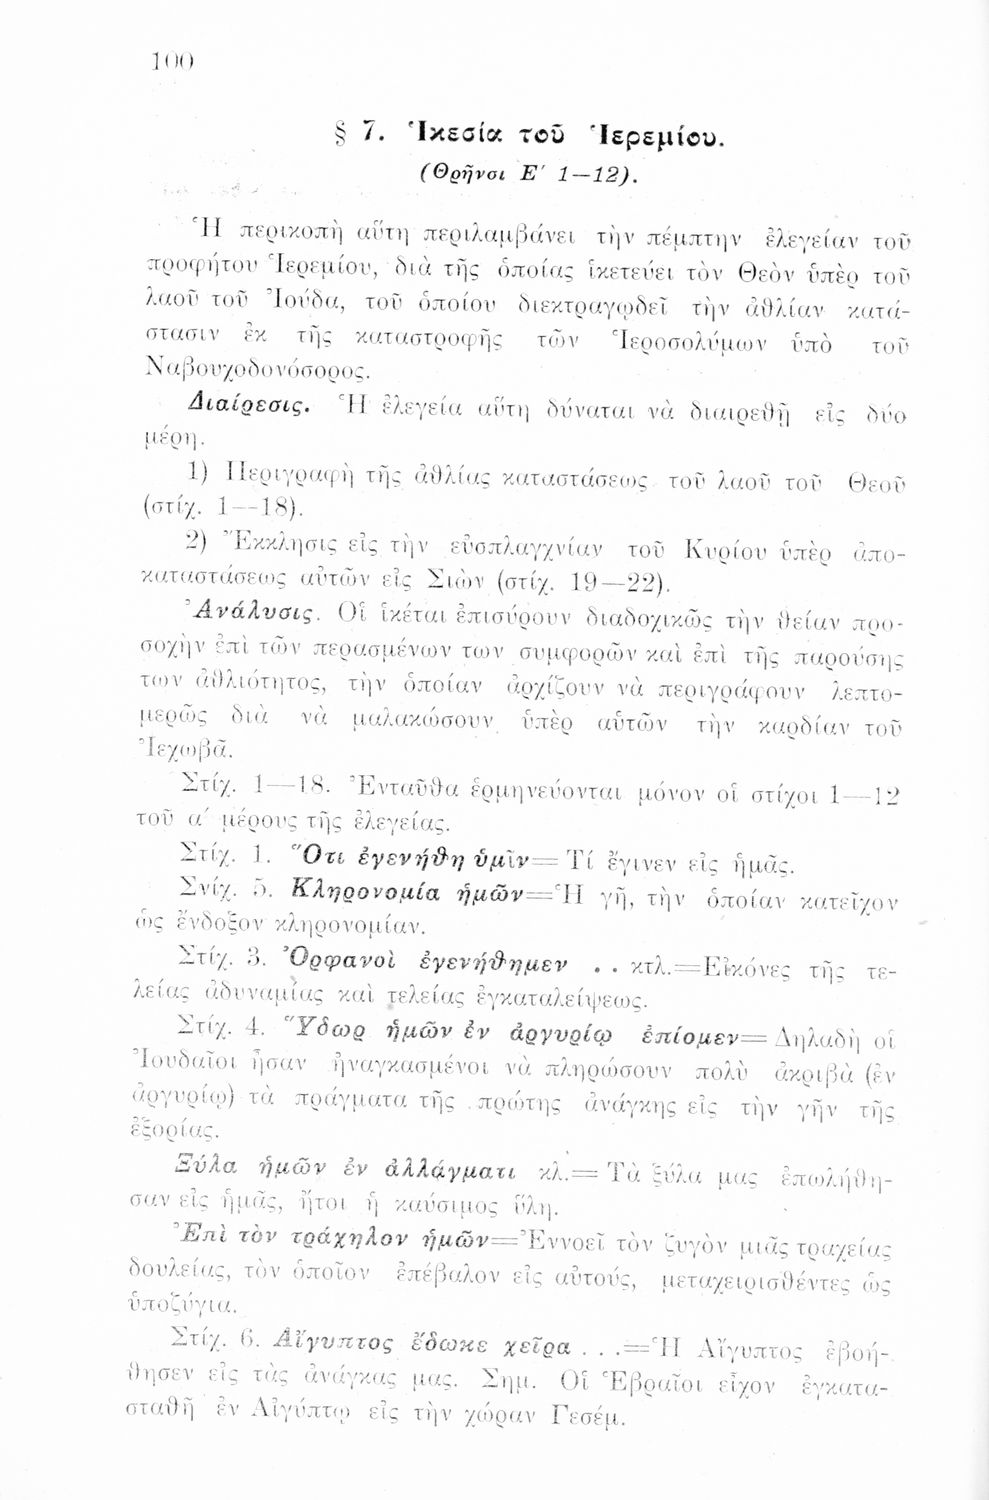 100
§ 7. Ἱκεσία τοῦ Ἱερεμίου.
(Θρῆνοι Ε΄ 1—12).
Ἡ περικοπὴ αὕτη περιλαμβάνει τὴν πέμπτην ἐλεγείαν τοῦ
προφήτου Ἱερεμίου, διὰ τῆς ὁποίας ἱκετεύει τὸν Θεὸν ὑπὲρ τοῦ
λαοῦ τοῦ Ἰούδα, τοῦ ὁποίου διεκτραγῳδεῖ τὴν ἀθλίαν κατά-
στασιν ἐκ τῆς καταστροφῆς τῶν Ἱεροσολύμων ὑπὸ τοῦ
Ναβουχοδονόσορος.
Διαίρεσις. Ἡ ἐλεγεία αὕτη δύναται νὰ διαιρεθῇ εἰς δύο
μέρη.
1) Περιγραφὴ τῆς ἀθλίας καταστάσεως τοῦ λαοῦ τοῦ Θεοῦ
(στίχ. 1—18).
2) Ἔκκλησις εἰς τὴν εὐσπλαγχνίαν τοῦ Κυρίου ὑπὲρ ἀπο-
καταστάσεως αὐτῶν εἰς Σιὼν (στίχ. 19—22).
Ἀνάλυσις. Οἱ ἱκέται ἐπισύρουν διαδοχικῶς τὴν θείαν προ-
σοχὴν ἐπὶ τῶν περασμένων των συμφορῶν καὶ ἐπὶ τῆς παρούσης
των ἀθλιότητος, τὴν ὁποίαν ἀρχίζουν νὰ περιγράφουν λεπτο-
μερῶς διὰ νὰ μαλακώσουν ὑπὲρ αὑτῶν τὴν καρδίαν τοῦ
Ἰεχωβᾶ.
Στίχ. 1—18. Ἐνταῦθα ἑρμηνεύονται μόνον οἱ στίχοι 1—12
τοῦ α΄ μέρους τῆς ἐλεγείας.
Στίχ. 1. Ὅτι ἐγενήθη ὑμῖν=Τί ἔγινεν εἰς ἡμᾶς.
Σνίχ. 5. Κληρονομία ἡμῶν=Ἡ γῆ, τὴν ὁποίαν κατεῖχον
ὡς ἔνδοξον κληρονομίαν.
Στίχ. 3. Ὀρφανοὶ ἐγενήθημεν . . κτλ.=Εἰκόνες τῆς τε-
λείας ἀδυναμίας καὶ τελείας ἐγκαταλείψεως.
Στίχ. 4. Ὕδωρ ἡμῶν ἐν ἀργυρίῳ ἐπίομεν=Δηλαδὴ οἱ
Ἰουδαῖοι ἦσαν ἠναγκασμένοι νὰ πληρώσουν πολὺ ἀκριβὰ (ἐν
ἀργυρίῳ) τὰ πράγματα τῆς πρώτης ἀνάγκης εἰς τὴν γῆν τῆς
ἐξορίας.
Ξύλα ἡμῶν ἐν ἀλλάγματι κλ.=Τὰ ξύλα μας ἐπωλήθη-
σαν εἰς ἡμᾶς, ἤτοι ἡ καύσιμος ὕλη.
Ἐπὶ τὸν τράχηλον ἡμῶν=Ἐννοεῖ τὸν ζυγὸν μιᾶς τραχείας
δουλείας, τὸν ὁποῖον ἐπέβαλον εἰς αὐτούς, μεταχειρισθέντες ὡς
ὑποζύγια.
Στίχ. 6. Αἴγυπτος ἔδωκε χεῖρα . . .=Ἡ Αἴγυπτος ἐβοή-
θησεν εἰς τὰς ἀνάγκας μας. Σημ. Οἱ Ἑβραῖοι εἶχον ἐγκατα-
σταθῆ ἐν Αἰγύπτῳ εἰς τὴν χώραν Γεσέμ.